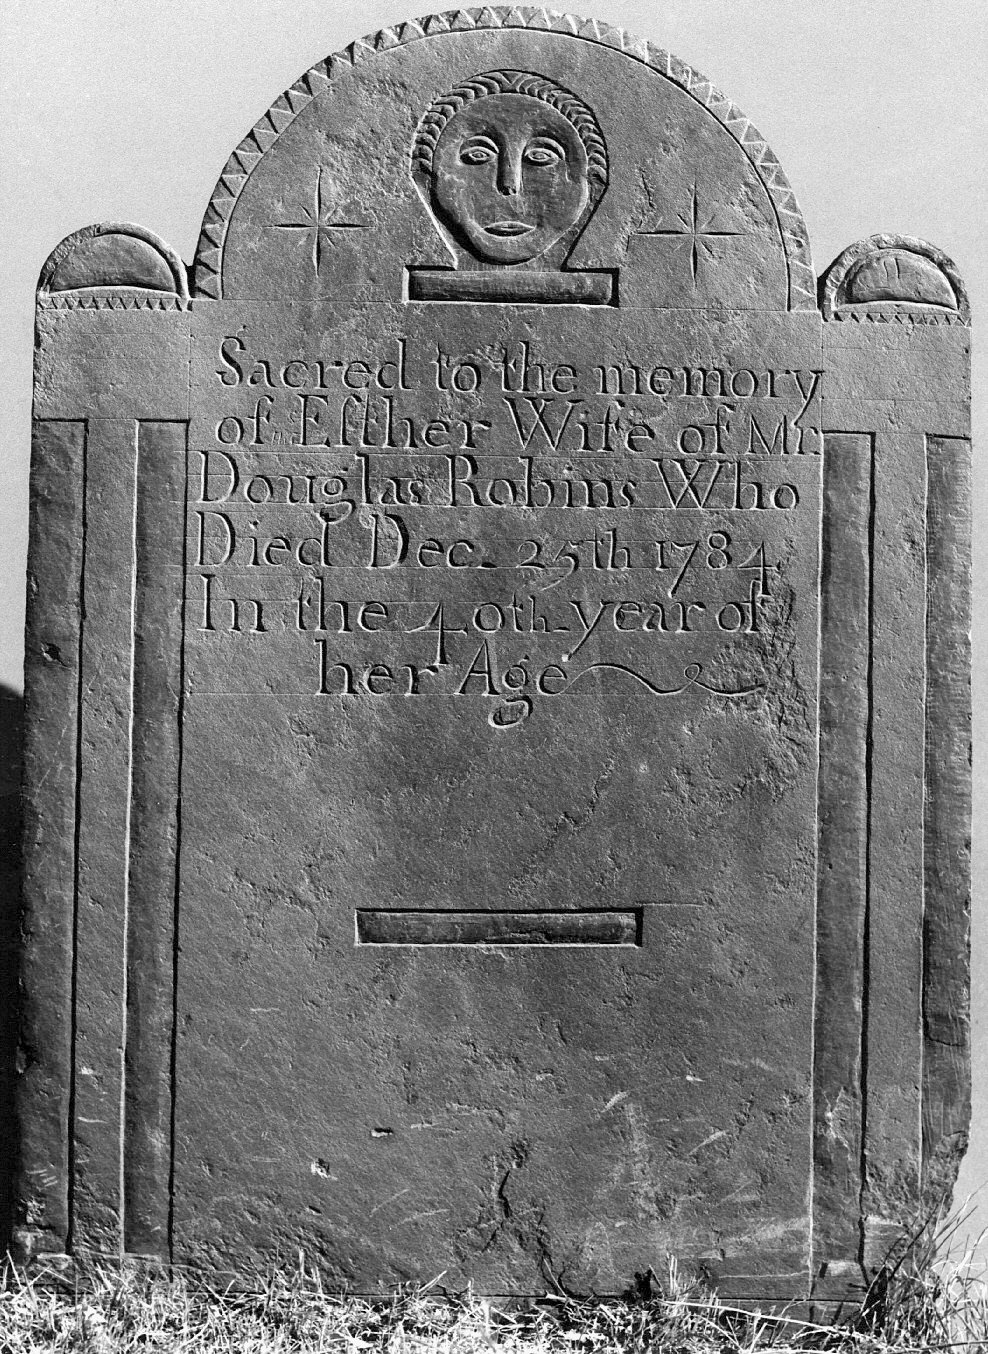 Sacred to the memory
of Eſther Wife of Mr.
Douglas Robins Who
Died Dec. 25th 1784
In the 40th year of
her Age